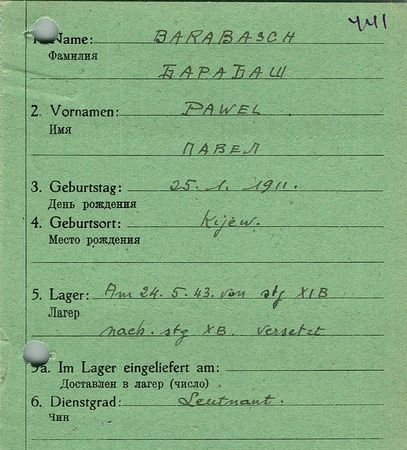 1. Name: BARABASCH
Фамилия
БАРАБАШ
2. Vornamen: PAWEL
Имя
ПАВЕЛ
3. Geburtstag: 25. 1. 1911.
День рождения
4. Geburtsort: Kijew.
Место рождения
5. Lager: Am 24. 5. 43. von stg XIB
Лагер
nach. stg XB. versetzt
5a. Im Lager eingeliefert am:
Доставлен в лагер (число)
6. Dienstgrad: Leutnant.
Чин